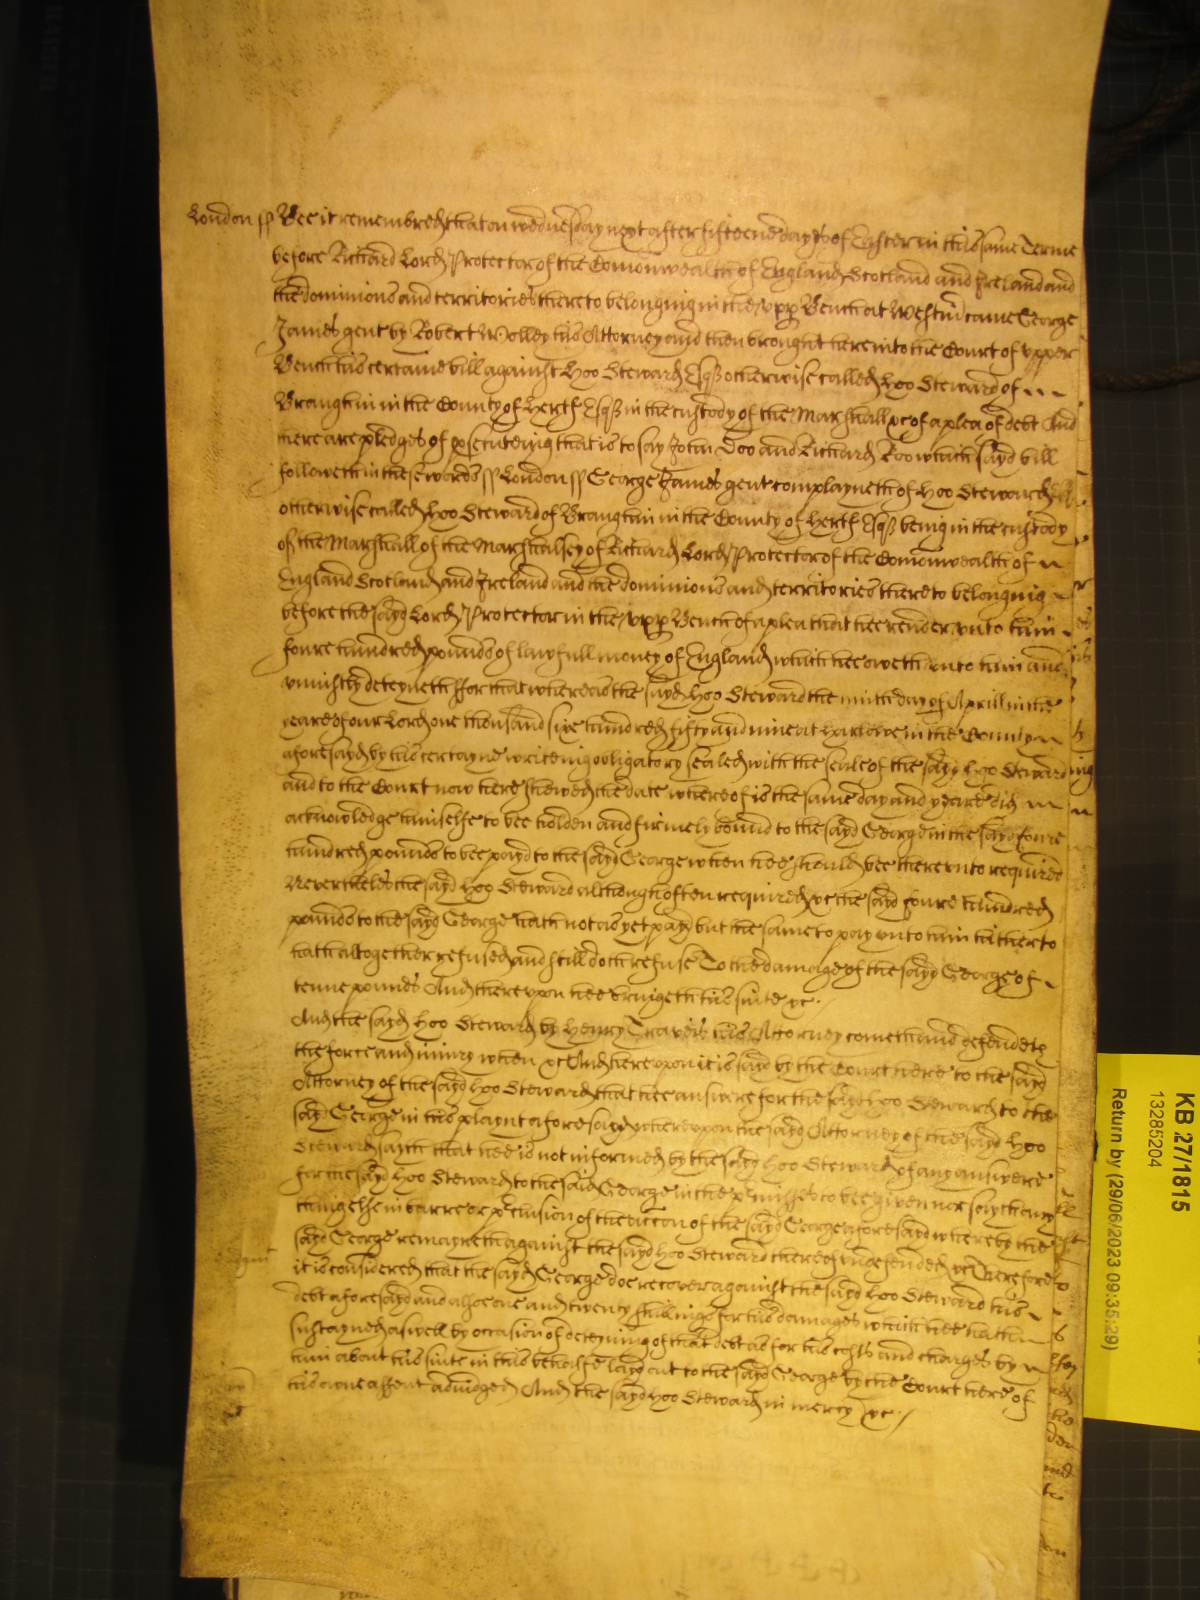 London ss Bee it remembred that on wednesday next after fifteene dayes of Easter in this same Terme
before Richard Lord Protector of the Comonwealth of England Scotland and Ireland and
the dominions and territories thereto belonging in the upp Bench at Westm came George
James gent by Robert his Attorney and then brought here into the Court of upper
Bench his certaine bill against Hoo Steward Esq otherwise called Hoo Steward of
Braughin in the County of Hertf Esq in the custody of the Marshall &c of a plea of debt And
there are pledges of psecuteing that is to say John Doo and Richard Roo which sayd bill
followeth in these words ss London ss George James gent complayneth of Hoo Steward
otherwise called Hoo Steward of Braughin in the County of Hertf Esq being in the custody
of the Marshall of the Marshalsey of Richard Lord Protector of the Comonwealth of
England Scotland and Ireland and the dominions and territories thereto belonging
before the sayd Lord Protector in the upp Bench of a plea that hee render unto him
foure hundred pounds of lawfull money of England which hee oweth unto him and
uniustly deteyneth ffor that whereas the sayd Hoo Steward the ninth day of Aprill in the
yeare of our Lord one thousand six hundred fifty and nine at Harlowe in the County
aforesayd by his certayne writeing obligatory sealed with the seale of the sayd Hoo Steward
and to the Court now here shewed the date whereof is the same day and yeare did
acknowledge himselfe to bee holden and firmely bound to the sayd George in the sayd foure
hundred pounds to bee payd to the sayd George when hee should bee thereunto required
Neverthelesse the sayd Hoo Steward although often required &c the sayd foure hundred
pounds to the sayd George hath not as yet payd but the same to pay unto him hitherto
hath altogether refused and still doth refuse To the damage of the sayd George of
tenne pounds And thereupon hee bringeth his suite &c
And the sayd Hoo Steward by Henry Travers his Attorney cometh and defendeth
the force and iniury when &c And hereupon it is sayd by the Court here to the sayd
Attorney of the sayd Hoo Steward that hee answere for the sayd Hoo Steward to the
sayd George in his playnt aforesayd whereupon the sayd Attorney of the sayd Hoo
Steward sayth that hee is not informed by the sayd Hoo Steward of any answere
for the sayd Hoo Steward to the said George in the pmisses to bee given nor say thany
thing else in barre or pclusion of the accon of the sayd George aforesayd whereby the
sayd George remayneth against the sayd Hoo Steward thereof undefended &c Therefore
it is considered that the sayd George doe recover against the sayd Hoo Steward his
debt aforesayd and alsoe one and twenty shillings for his damages which hee hath
sustayned aswell by occasion of deteyning of that debt as for his costs and charges by
him about his suite in this behalfe layd out to the sayd George by the Court here of
his owne assent adiudged And the sayd Hoo Steward in mercy &c
KB 27/1815
13285204
Return by (29/06/2023 09:35:29)